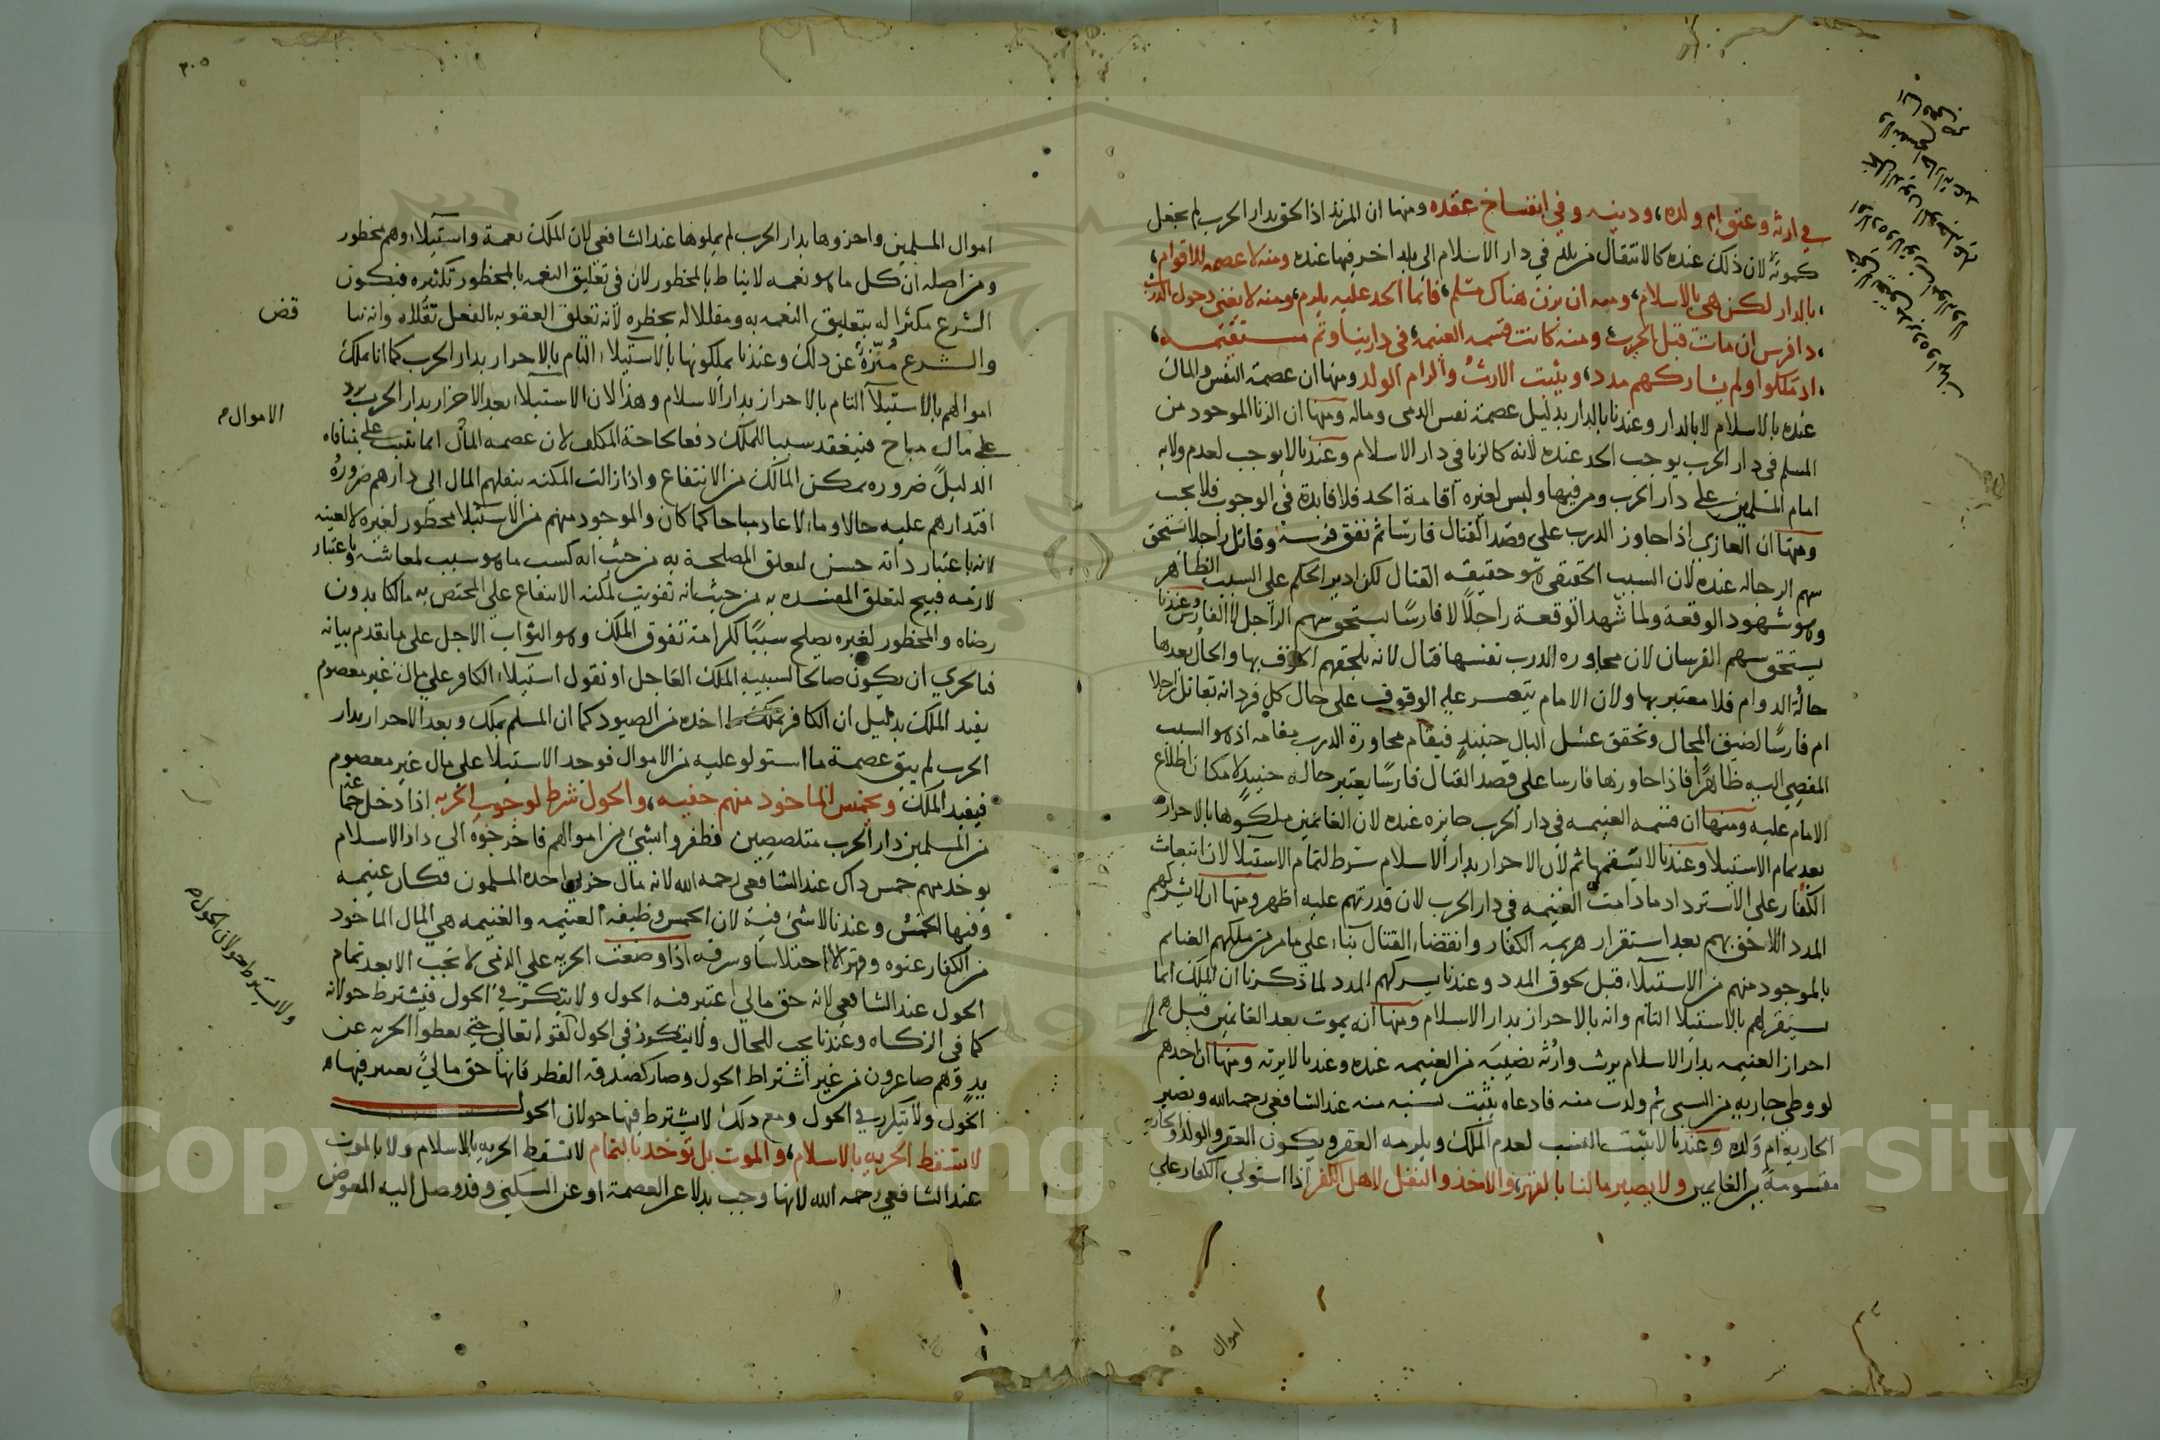 في ارثه وعتق ام ولده، ودينه وفي انفساخ عقده ومنها ان المرتد اذا لحق بدار الحرب لم يجعل
كموته لان ذلك عنده كالانتقال من بلد في دار الاسلام الى بلد اخر فيها عنده ومنه لا عصمه للاقوام،
، بالدار لكن هي بالاسلام، ومنه ان يزن هناك مسلم، فانما الحد عليه يلزم، ومنه لا يغني دخول الدرب
، دا فرس ان مات قبل الحرب، ومنه كانت قسمه الغنيمه، في دارنا وثم مستقيمه،
، اذ ملكوا ولم يشاركهم مدد، ويثبت الارث والزام الولد ومنها ان عصمة النفس والمال
عنده بالاسلام لا بالدار وعندنا بالدار بدليل عصمة نفس الذمى وماله ومنها ان الزنا الموجود من
المسلم في دار الحرب يوجب الحد عنده لانه كالزنا في دار الاسلام وعندنا لا يوجب لعدم ولايه
امام المسلمين على دار الحرب ومن فيها وليس لغيره اقامة الحد فلا فايدة في الوجوب فلا يجب
ومنها ان الغازي اذا جاوز الدرب على قصد القتال فارسا ثم نفق فرسه وقاتل راجلا استحق
سهم الرجاله عنده لان السبب الحقيقي هو حقيقه القتال لكن ادير الحكم على السبب الظاهر
وهو شهود الوقعة ولما شهد الوقعة راجلا لا فارسا يستحق سهم الراجل لا الفارس وعندنا
يستحق سهم الفرسان لان مجاوره الدرب نفسها قتال لانه يلحقهم الخوف بها والحال بعدها
حالة الدوام فلا معتبر بها ولان الامام يتعسر عليه الوقوف على حال كل فرد انه يقاتل راجلا
ام فارسا لضيق المجال وتحقق شغل البال حينيذ فيقام مجاورة الدرب مقامه اذ هو السبب
المفضي اليه ظاهرا فاذا جاوزها فارسا على قصد القتال فارسا يعتبر حاله حينيذ لامكان اطلاع
الامام عليه ومنها ان قسمه الغنيمه في دار الحرب جايزه عنده لان الغانمين ملكوها بالاحراز
بعد تمام الاستيلا وعندنا لا نقسمها ثم لان الاحراز بدار الاسلام شرط لتمام الاستيلا لان انبعاث
الكفار على الاسترداد ما دامت الغنيمه في دار الحرب لان قدرتهم عليه اظهر ومنها ان لا شركهم
المدد اللاحق بهم بعد استقرار هزيمه الكفار وانقضاء القتال بناء على ما مر من ملكهم الغنايم
بالموجود منهم من الاستيلاء قبل لحوق المدد وعندنا يشركهم المدد لما ذكرنا ان الملك انما
يتقرر لهم بالاستيلا التام وانه بالاحراز بدار الاسلام ومنها انه يموت بعد الغانمين قبل
احراز الغنيمه بدار الاسلام يرث وارثه نصيبه من الغنيمه عنده وعندنا لا يرثه ومنها ان احدهم
لو وطي جاريه من السبى ثم ولدت منه فادعاه يثبت نسبه منه عند الشافعي رحمه الله ويصير
الجاريه ام ولده وعندنا لا يثبت النسب لعدم الملك ويلزمه العقر ويكون العقر والولد والجاريه
مقسومة بين الغانمين ولا يصير مالنا بالقهر، والاخذ والنقل لاهل الكفر اذا استولى الكفار على
اموال
٣٠٥
اموال المسلمين واحرزوها بدار الحرب لم يملكوها عند الشافعي لان الملك نعمة واستيلاءهم محظور
ومن اصله ان كل ما هو نعمه لا يناط بالمحظور لان في تعليق النعمه بالمحظور تكثيره فيكون
الشرع مكثرا له بتعليق النعمه به ومقللا له بحظره لانه تعلق العقوبه بالفعل تقلله وانه تناقض
والشرع منزه عن ذلك وعندنا يملكونها بالاستيلاء التام بالاحراز بدار الحرب كما انا نملك
اموالهم بالاستيلاء التام بالاحراز بدار الاسلام وهذا لان الاستيلاء بعد الاحراز بدار الحرب يرد
على مال مباح فينعقد سببا للملك دفعا لحاجة المكلف لان عصمه المال انما تثبت على منافاه
الدليل ضروره تمكن المالك من الانتفاع واذا زالت المكنه بنقلهم المال الى دارهم ضرورة
اقتدارهم عليه حالا ومالا عاد مباحا كما كان والموجود منهم من الاستيلا محظور لغيره لا لعينه
لانه باعتبار ذاته حسن لتعلق المصلحة به من حيث انه كسب ما هو سبب لمعاشه وباعتبار
لازمه قبيح لتعلق المفسده به من حيث انه تفويت لمكنه الانتفاع على المختص به مالكا بدون
رضاه والمحظور لغيره يصلح سببا لكرامة تفوق الملك وهو الثواب الاجل على ما تقدم بيانه
فبالحري ان يكون صالحا لسببيه الملك العاجل او نقول استيلاء الكافر على مال غير معصوم
يفيد الملك بدليل ان الكافر تملك ما اخذه من الصيود كما ان المسلم يملك وبعد الاحراز بدار
الحرب لم يبق عصمة ما استولو عليه من الاموال فوجد الاستيلا على مال غير معصوم
فيفيد الملك ويخمس الماخوذ منهم خفيه، والحول شرط لوجوب الجزيه اذا دخل جماعة
من المسلمين دار الحرب متلصصين فظفروا بشئ من اموالهم فاخرجوه الى دار الاسلام
يوخذ منهم خمس ذاك عند الشافعي رحمه الله لانه مال حربي اخذه المسلمون فكان غنيمه
وفيها الخمس وعندنا لا شئ فيه لان الخمس وظيفه الغنيمه والغنيمه هي المال الماخوذ
من الكفار عنوه وقهرا لا اختلاسا وسرقه اذا وضعت الجزيه على الذمى لا تجب الا بعد تمام
الحول عند الشافعي لانه حق مالي اعتبر فيه الحول ولا يتكرر في الحول فيشترط حولانه
كما في الزكاه وعندنا يجب للحال ولا يتكرر في الحول لقوله تعالى حتى يعطوا الجزيه عن
يد وهم صاغرون من غير اشتراط الحول وصار كصدقه الفطر فانها حق مالي يعتبر فيها
الحول ولا يتكرر في الحول ومع ذلك لا يشترط فيها حولان الحول
لا تسقط الجزيه بالاسلام، والموت بل توخذ بالتمام لا تسقط الجزيه بالاسلام ولا بالموت
عند الشافعي رحمه الله لانها وجب بدلا عن العصمة او عن السكنى وقد وصل اليه المعوض
قض
الاموال
ولا يشترط حولان الحول
Copyright © King Saud University